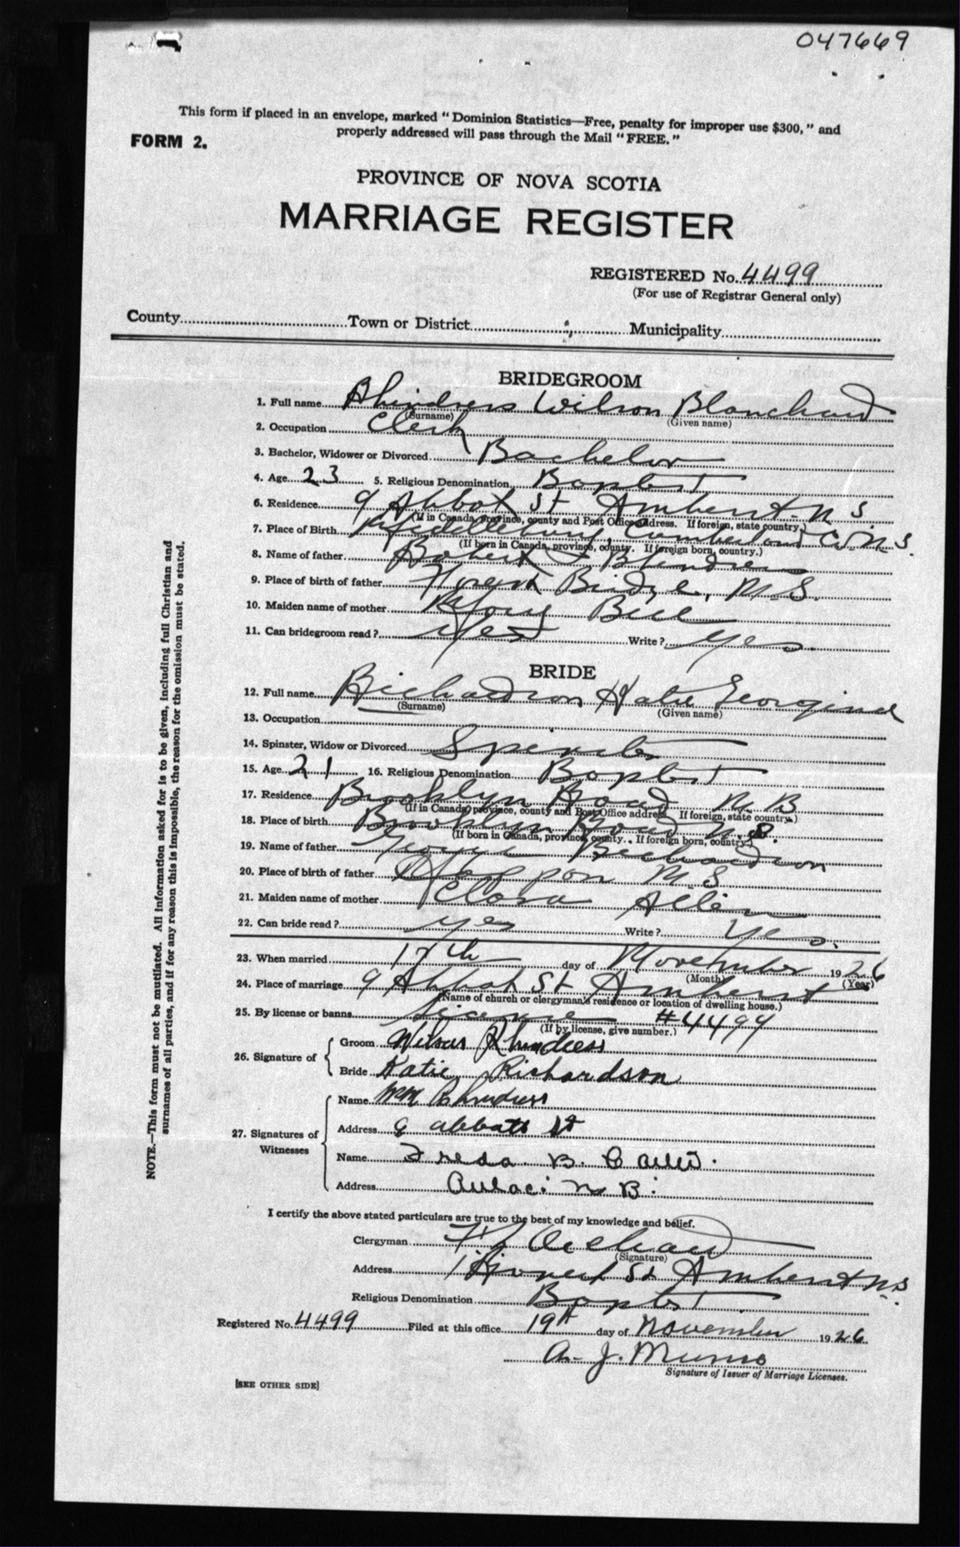 047669
This form if placed in an envelope, marked "Dominion Statistics—Free, penalty for improper use $300," and
properly addressed will pass through the Mail "FREE."
FORM 2.
PROVINCE OF NOVA SCOTIA
MARRIAGE REGISTER
REGISTERED No. 4499
(For use of Registrar General only)
County Town or District Municipality
BRIDEGROOM
1. Full name Rhindress Wilson Blanchard
(Surname) (Given name)
2. Occupation Clerk
3. Bachelor, Widower or Divorced Bachelor
4. Age 23 5. Religious Denomination Baptist
6. Residence 9 Abbot St Amherst N S.
(If in Canada, province, county and Post Office address. If foreign, state country.)
7. Place of Birth Cumberland Co. N.S.
(If born in Canada, province, county. If foreign born, country.)
8. Name of father Robert Rhindress
9. Place of birth of father Bridge, N.S.
10. Maiden name of mother
11. Can bridegroom read? Yes Write? Yes.
BRIDE
12. Full name Richardson Katie Georgina
(Surname) (Given name)
13. Occupation
14. Spinster, Widow or Divorced Spinster
15. Age 21 16. Religious Denomination Baptist
17. Residence Brooklyn Road N B
(If in Canada, province, county and Post Office address. If foreign, state country.)
18. Place of birth Brooklyn Road N.B.
(If born in Canada, province, county. If foreign born, country.)
19. Name of father George Richardson
20. Place of birth of father N.S.
21. Maiden name of mother Clara Allen
22. Can bride read? Yes Write? Yes.
23. When married 17th day of November 1926
(Month) (Year)
24. Place of marriage 9 Abbot St Amherst
(Name of church or clergyman's residence or location of dwelling house.)
25. By license or banns license #4499
(If by license, give number.)
26. Signature of Groom Wilson Rhindress
Bride Katie Richardson
27. Signatures of Witnesses Name Wm Rhindress
Address 9 abbott st
Name Freda B.
Address Aulac N B.
I certify the above stated particulars are true to the best of my knowledge and belief.
Clergyman
(Signature)
Address St Amherst NS.
Religious Denomination Baptist
Registered No. 4499 Filed at this office 19th day of November 1926
A. J. Munro
Signature of Issuer of Marriage Licenses.
[SEE OTHER SIDE]
NOTE.—This form must not be mutilated. All information asked for is to be given, including full Christian and
surnames of all parties, and if for any reason this is impossible, the reason for the omission must be stated.